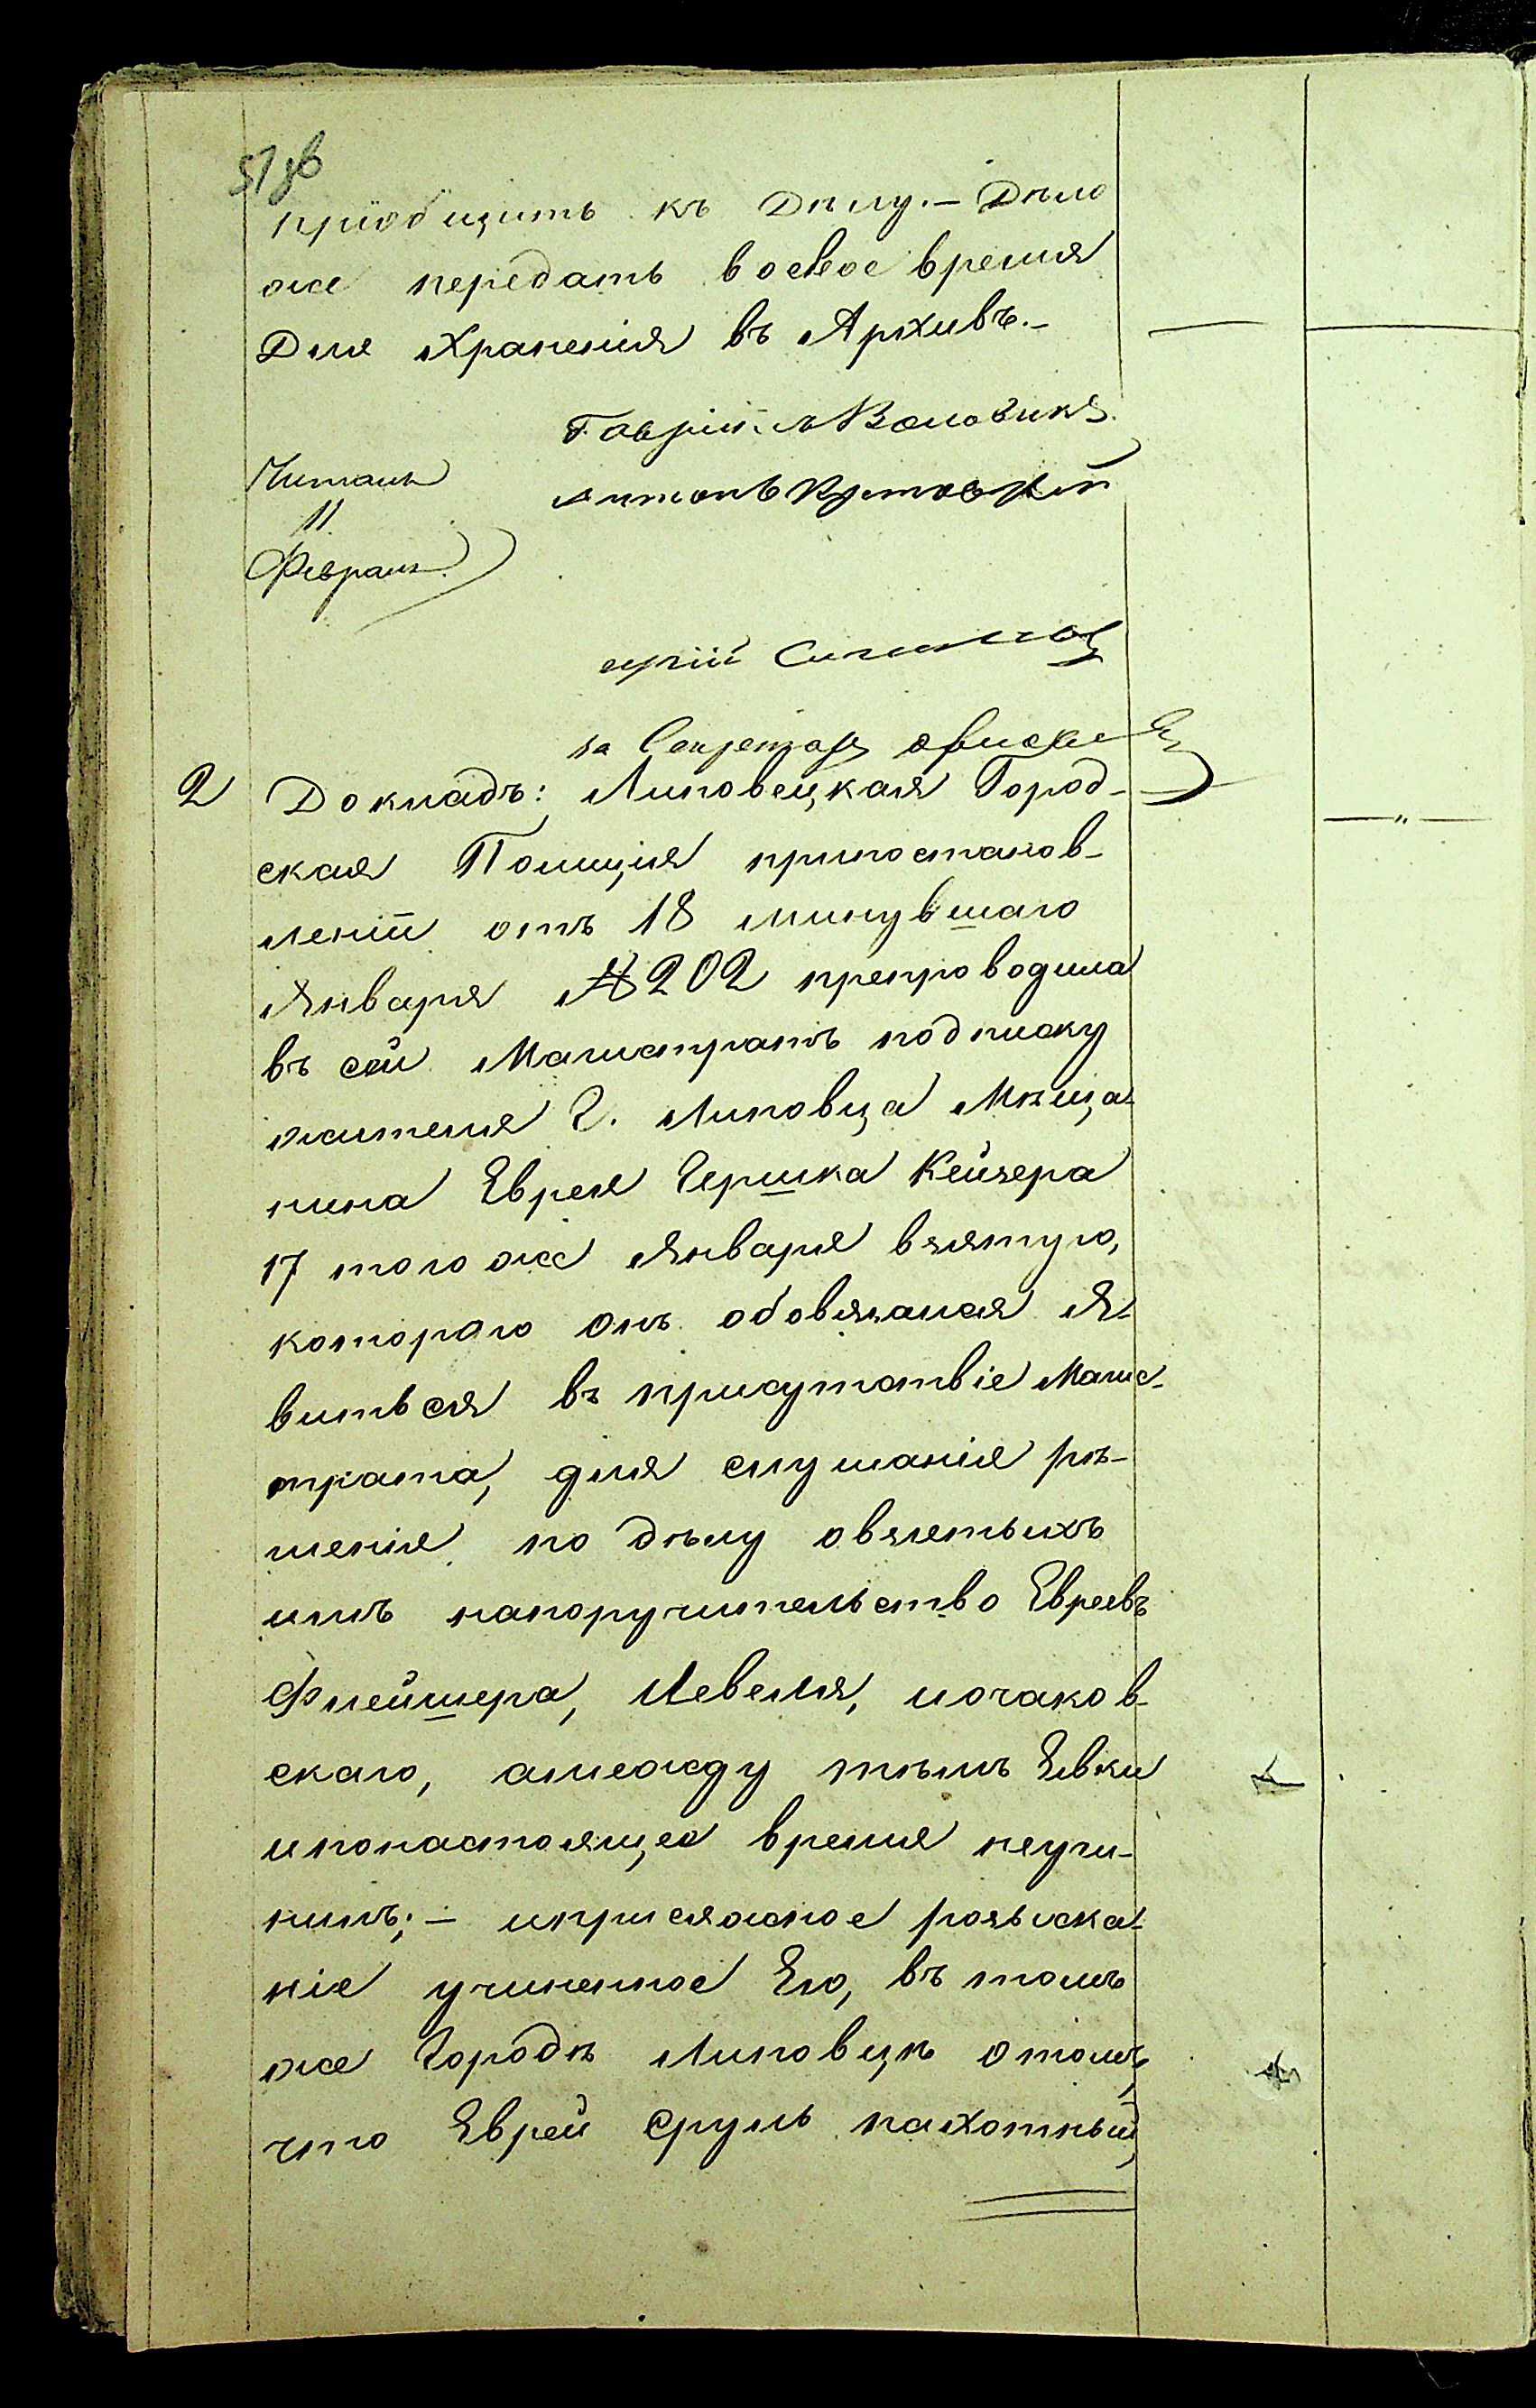 51 зв
пріобщить къ Дѣлу. — Дѣло
же передать восвое время
Для Храненія въ Архивъ. —
Гавріилъ Воловикъ
Читалъ
Антонъ
11
Февраля
за Секретаря
2 Докладъ: Липовецкая Город-
ская Полиція припостанов-
леніи отъ 18 минувшаго
Января № 202 препроводила
въ сей Магистратъ подписку
жителя Г. Липовца Мѣща-
нина Еврея Гершка Кейзера
17 того же Января взятую,
котораго онъ обовязался Я-
виться въ присутствіе Магис-
трата, для слушанія рѣ-
шенія по дѣлу овзятыхъ
имъ напоручительство Евреевъ
Флейшера, Левеля, иочаков-
скаго, амежду тѣмъ Явки
ипонастоящее время неучи-
нилъ; — иприсяжное розыска-
ніе учиненное Его, въ томъ
же Городѣ Липовцѣ отомъ,
что Еврей Сруль пахотный,